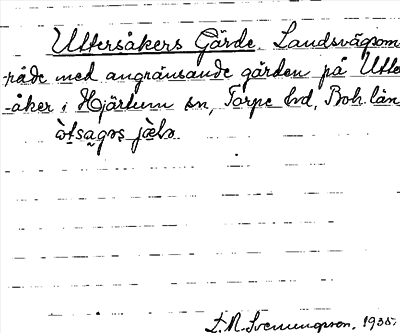 Uttersåkers Gärde. Landsvägsom-
råde med angränsande gärden på Utter
-åker i Hjärtum sn, Torpe hd, Boh. län
S. A. Svenungson. 1935.